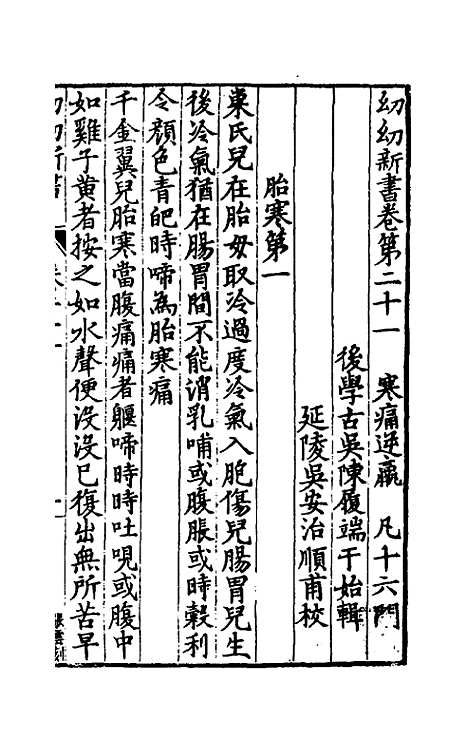 幼幼新書卷第二十一　寒痛逆羸　凡十六門
後學古吳陳履端于始輯
延陵吳安治順甫校
胎寒第一
巢氏兒在胎母取冷過度冷氣入胞傷兒腸胃兒生
後冷氣猶在腸胃間不能消乳哺或腹脹或時穀利
令顔色青皅時啼為胎寒痛
千金翼兒胎寒當腹痛痛者軀啼時時吐哯或腹中
如雞子黄者按之如水聲便没没已復出無所苦早